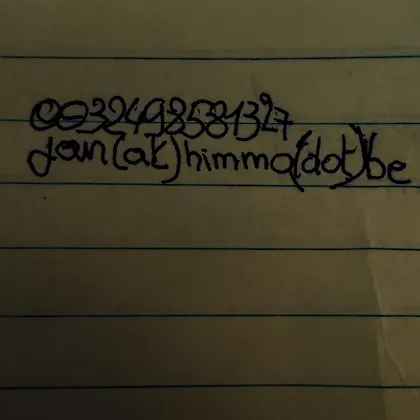 0032498581327
Joun(at)himma(dot)be